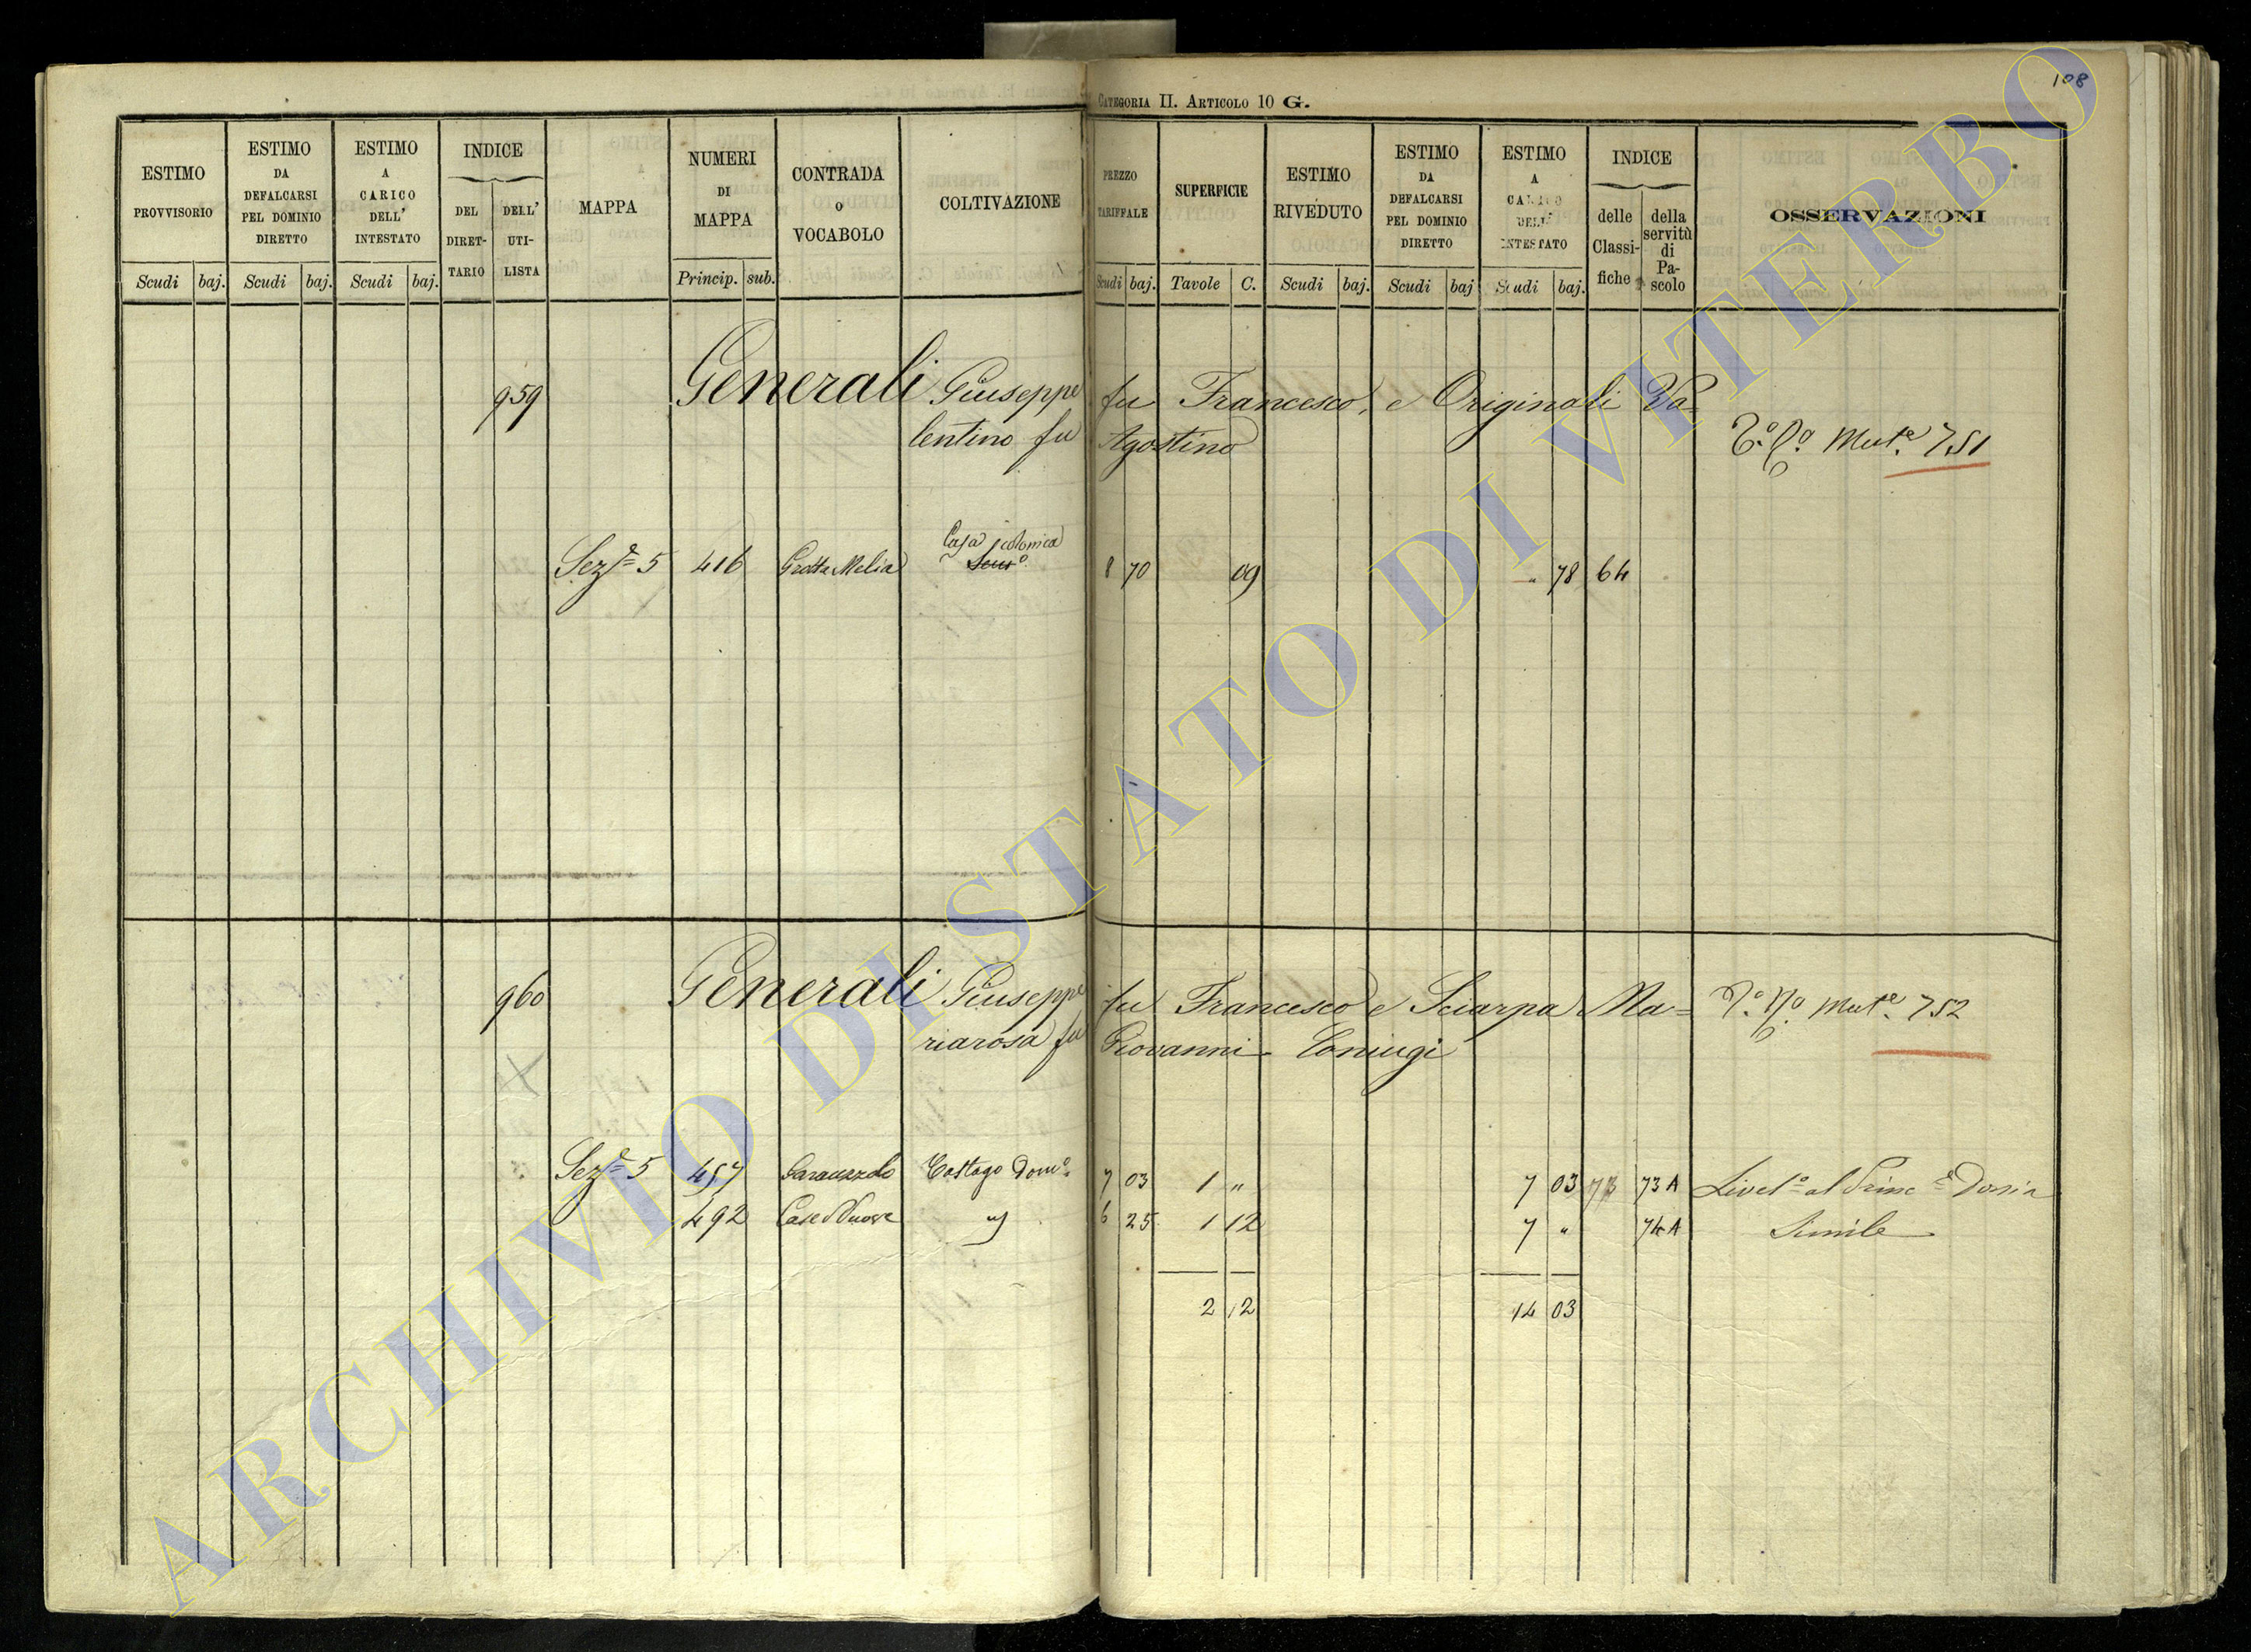 108
CATEGORIA II. ARTICOLO 10 G.
ESTIMO PROVVISORIO
ESTIMO DA DEFALCARSI PEL DOMINIO DIRETTO
ESTIMO A CARICO DELL' INTESTATO
INDICE
DEL DIRET-TARIO
DELL' UTI-LISTA
MAPPA
NUMERI DI MAPPA
CONTRADA O VOCABOLO
COLTIVAZIONE
PREZZO TARIFFALE
SUPERFICIE
ESTIMO RIVEDUTO
ESTIMO DA DEFALCARSI PEL DOMINIO DIRETTO
ESTIMO A CARICO DELL' INTESTATO
INDICE
delle Classi-fiche
della servitù di Pa-scolo
OSSERVAZIONI
Scudi baj. Scudi baj. Scudi baj. Princip. sub. Scudi baj. Tavole C. Scudi baj. Scudi baj Scudi baj.
959 Generali Giuseppe fu Francesco, e Originali Va-
lentino fu Agostino
Mut.e 751
Casa colonica
Sez.e 5 416 Grotta Melia 8 70 09 " 78 64
960 Generali Giuseppe fu Francesco e Sciarpa Ma=
riarosa fu Giovanni Coniugi
Mut.e 752
Sez.e 5 457 Castag.o Dom.o 7 03 1 " 7 03 73 73A Livel.o al Princ.e Doria
492 Case Nuove 6 25 1 12 7 " 74A Simile
2 12 14 03
ARCHIVIO DI STATO DI VITERBO